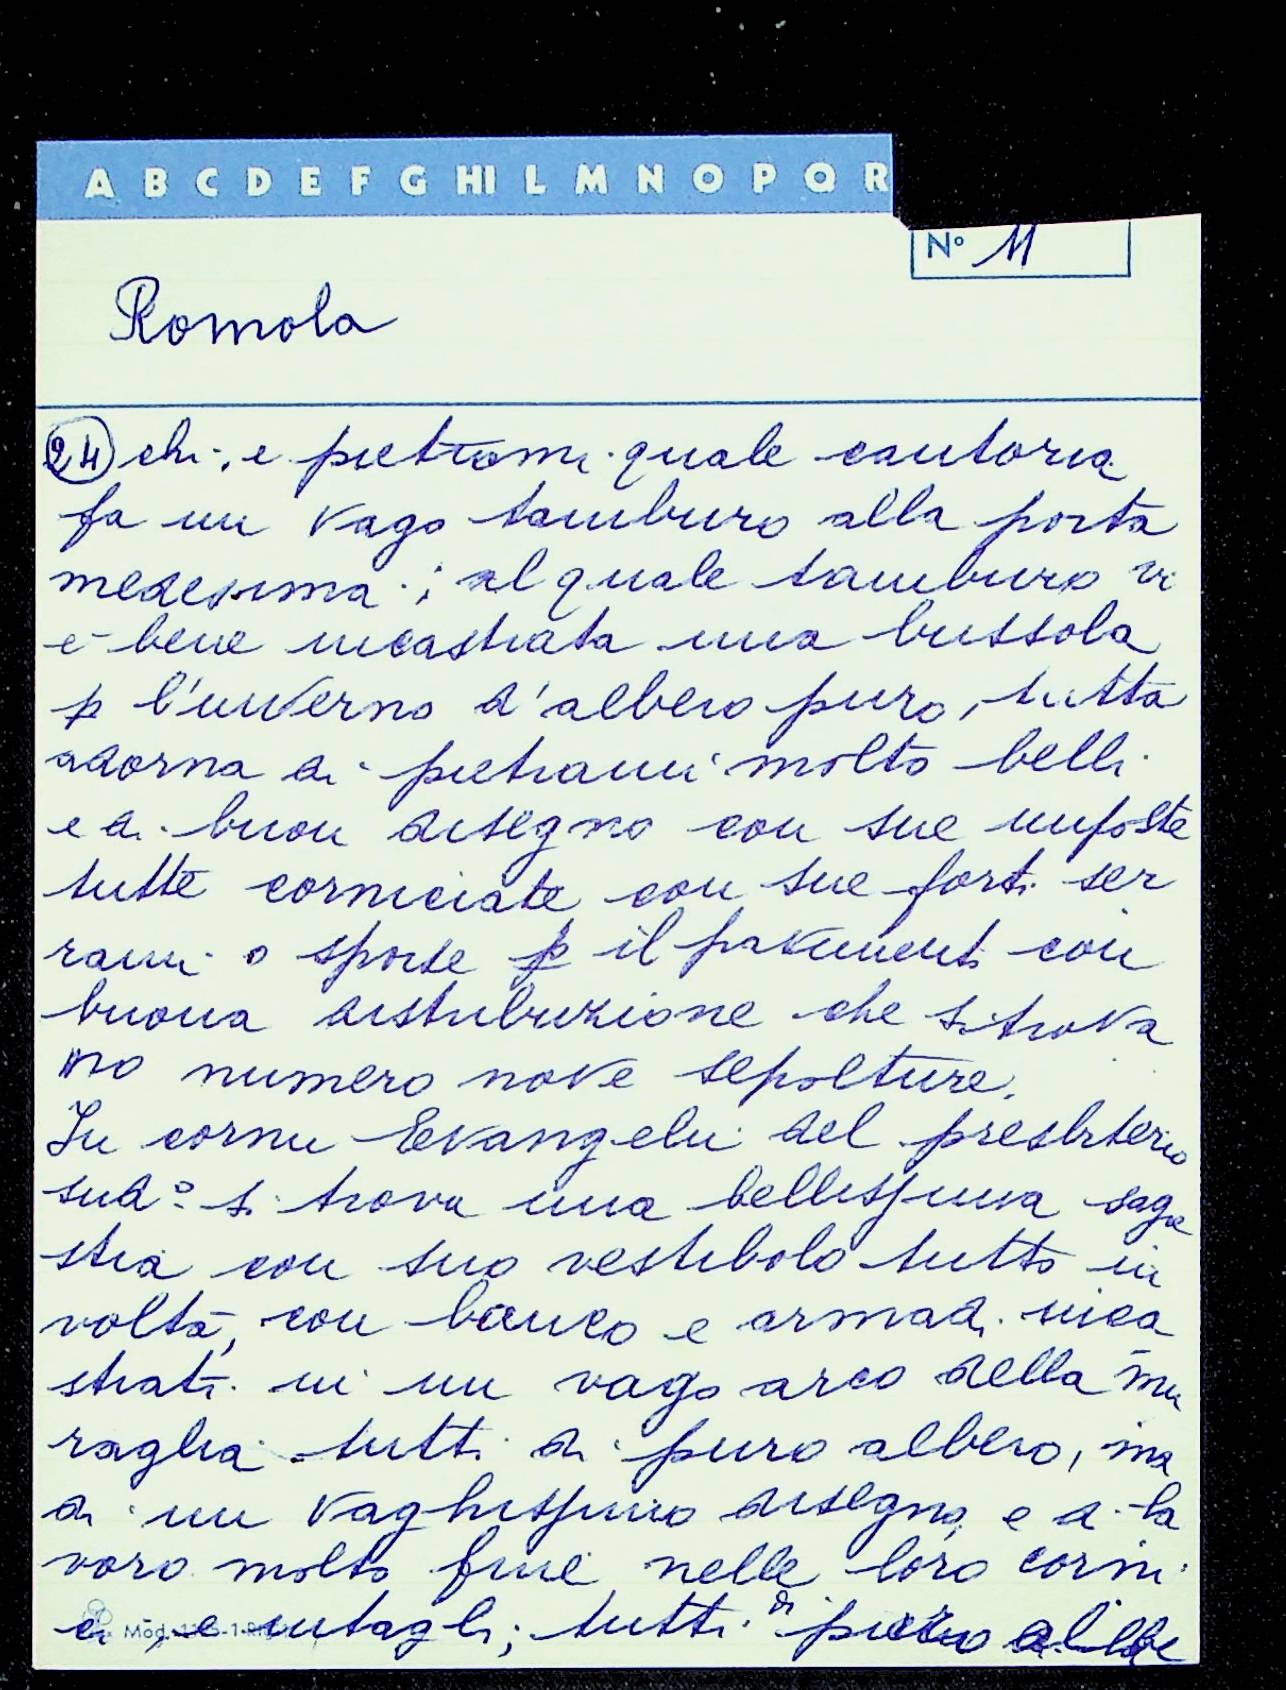 A B C D E F G HI L M N O P Q R
N° 11
Romola
24 chi, e pietrami quale cantoria
fa un vago tamburo alla porta
medesima; al quale tamburo vi
è bene incastrata una bussola
p l'inverno d'albero puro, tutta
adorna di pietrami molto belli
e di buon disegno con sue imposte
tutte corniciate con sue forti ser
rami o sparse p il pavimento con
buona distribuzione che si trova
no numero nove sepolture.
In cornu Evangelii del presbiterio
sud.° si trova una bellissima sagre
stia con suo vestibolo tutto in
volta, con banco e armadi inca
strati in un vago arco della mu
raglia tutti di puro albero, ma
di un vaghissimo disegno, e di la
voro molto fine nelle loro corni
ci, e intagli; tutti di albe